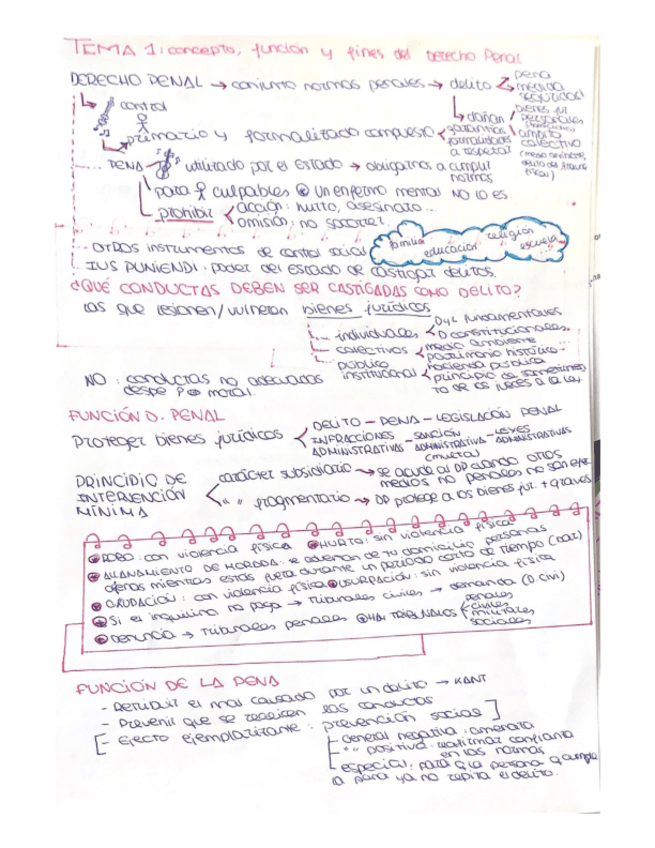 TEMA 1: concepto, función y fines del Derecho Penal
DERECHO PENAL → conjunto normas penales → delito
pena
medida
seguridad
control
primario y formalizado compuesto
dañan
garantías
formalidades
a respetar
bienes jur
personales
ámbito
colectivo
(medio ambiente,
PENA utilizado por el estado → obligarnos a cumplir
normas
para culpables un enfermo mental NO lo es.
prohibir
acción: hurto, asesinato...
omisión: no socorrer
OTROS instrumentos de control social
familia
educación
religión
escuela
IUS PUNIENDI: poder del estado de castigar delitos.
¿QUÉ CONDUCTAS DEBEN SER CASTIGADAS COMO DELITO?
Las que lesionen/vulneran bienes jurídicos
individuales
D y L fundamentales
D constitucionales
colectivos
medio ambiente
patrimonio histórico
público
institucional
hacienda pública
principio de sometimien
to de los jueces a la ley.
NO: conductas no adecuadas
desde P moral.
FUNCIÓN D. PENAL
Proteger bienes jurídicos
DELITO - PENA - LEGISLACIÓN PENAL
INFRACCIONES - SANCIÓN - LEYES
ADMINISTRATIVAS ADMINISTRATIVA ADMINISTRATIVAS
(multa)
PRINCIPIO DE
INTERVENCIÓN
MÍNIMA
carácter subsidiario → se acude al DP cuando otros
medios no penales no son efic
" " fragmentario → DP protege a los bienes jur. + graves
ROBO: con violencia física HURTO: sin violencia física
ALLANAMIENTO DE MORADA: se adueñan de tu domicilio personas
ajenas mientras estás fuera durante un período corto de tiempo
OCUPACIÓN: con violencia física USURPACIÓN: sin violencia física
Si el inquilino no paga → tribunales civiles → demanda (D. civil)
Denuncia → tribunales penales HAY TRIBUNALES
penales
civiles
militares
sociales
FUNCIÓN DE LA PENA
- Retribuir el mal causado por un delito → KANT
- Prevenir que se realicen las conductas
- Efecto ejemplarizante: prevención social
general negativa: amenaza
" " positiva: reafirmar confianza
en las normas
especial: para q la persona q cumple
la pena ya no repita el delito.